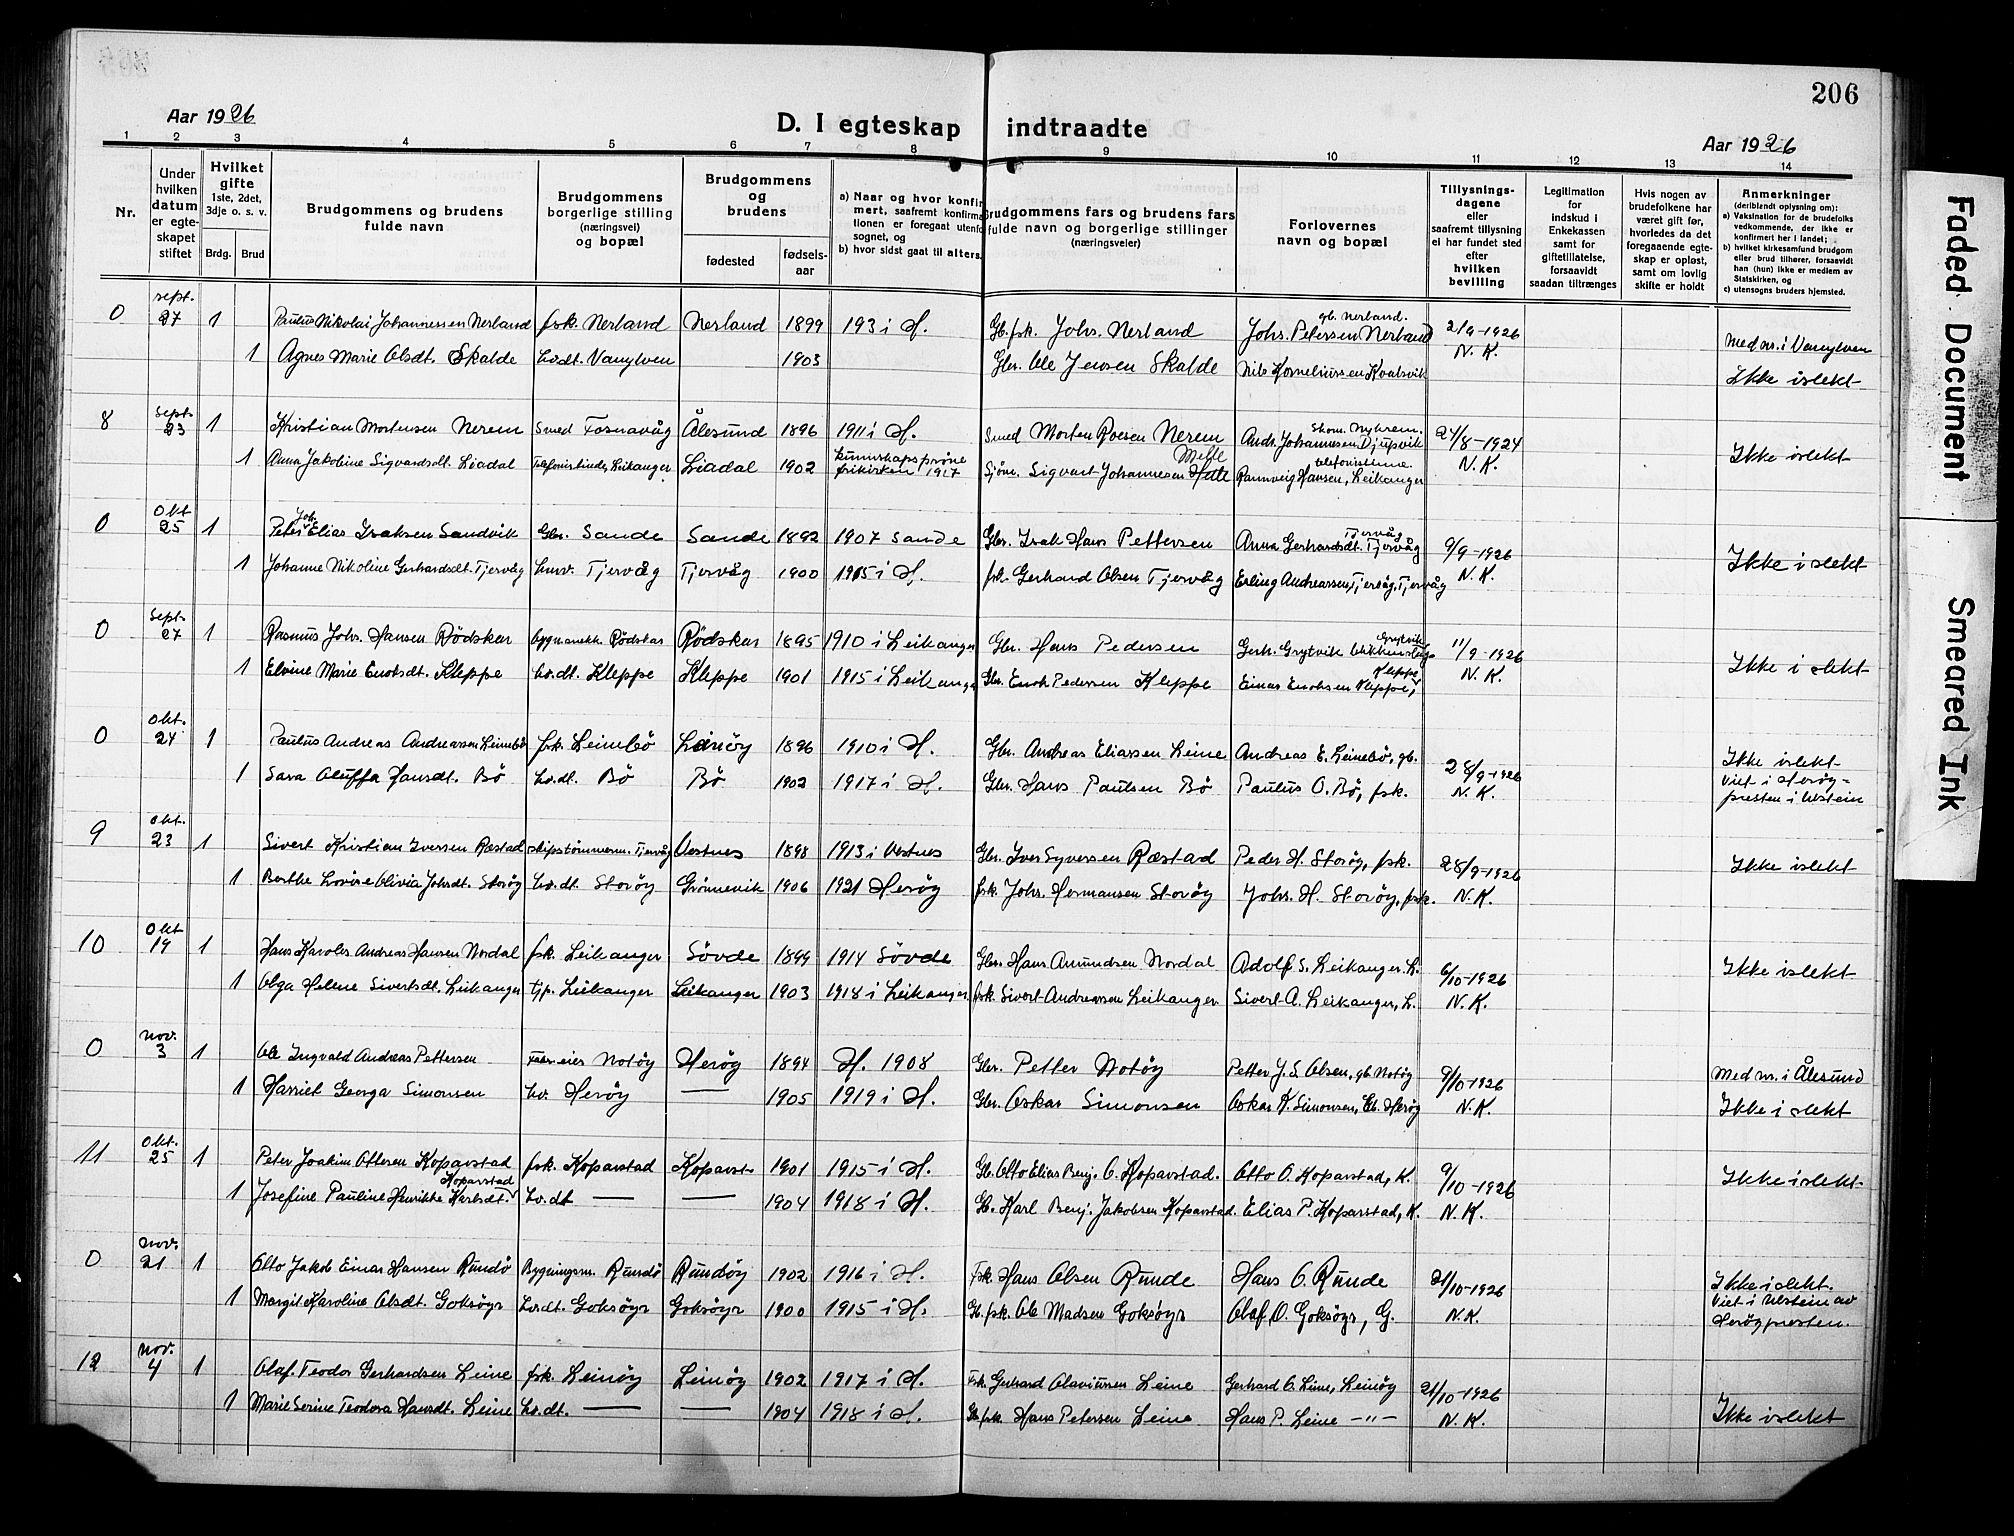 206
Aar 1926
D. I egteskap indtraadte
Aar 1926
1 2 3 4 5 6 7 8 9 10 11 12 13 14
Nr.
Under hvilken datum er egteskapet stiftet
Hvilket gifte 1ste, 2det, 3dje o. s. v.
Brdg. Brud
Brudgommens og brudens fulde navn
Brudgommens borgerlige stilling (næringsvei) og bopæl
Brudgommens og brudens
fødested
fødsels-aar
a) Naar og hvor konfirmert, saafremt konfirmationen er foregaat utenfor sognet, og
b) hvor sidst gaat til alters.
Brudgommens fars og brudens fars fulde navn og borgerlige stillinger (næringsveier)
Forlovernes navn og bopæl
Tillysnings-dagene eller saafremt tillysning ei har fundet sted efter hvilken bevilling
Legitimation for indskud i Enkekassen samt for giftetillatelse, forsaavidt saadan tiltrænges
Hvis nogen av brudefolkene har været gift før, hvorledes da det foregaaende egteskap er opløst, samt om lovlig skifte er holdt
Anmerkninger (deriblandt oplysning om):
a) Vaksination for de brudefolks vedkommende, der ikke er konfirmert her i landet;
b) hvilket kirkesamfund brudgom eller brud tilhører, forsaavidt han (hun) ikke er medlem av Statskirken, og
c) utensogns bruders hjemsted.
0 sept. 27 1 Paulus Nikolai Johannessen Nerland fsk. Nerland Nerland 1899 193 i H. Gb. fsk. Johs. Nerland Johs. Petersen Nerland gb. Nerland. 2/9-1926 Med nr. i Vanylven
1 Agnes Marie Olsdt. Skalde hv.dt. Vanylven 1903 Gbr. Ole Jensen Skalde Nils Korneliussen Kvalsvik N. K. Ikke i slekt
8 sept. 23 1 Kristian Mortensen Nerem Smed Fosnavåg Ålesund 1896 1911 i H. Smed Morten Roesen Nerem Andr. Johannesen Djupsvik 24/8-1924
1 Anna Jakobine Sigvardsdt. Liadal Telefonistinde, Leikanger Liadal 1902 kunnskapsprøve frikirken 1917 Sjøm. Sigvart Johannesen Melle Rannveig Hansen, Leikanger telefonistinne N. K. Ikke i slekt
0 Okt 25 1 Peter Joh. Elias Isaksen Sandvik Gbr. Sande Sande 1892 1907 Sande Gbr. Isak Hans Pettersen Anna Gerhardsdt. Tjervåg Tjervåg 9/9-1926
1 Johanne Nikoline Gerhardsdt. Tjervåg husv. Tjervåg Tjervåg 1900 1915 i H. fsk. Gerhard Olsen Tjervåg Erling Andreassen Tjervåg, Tjervåg N. K. Ikke i slekt
0 Sept. 27 1 Rasmus Johs. Hansen Rödskar bygn.snekk. Rødskar Rödskar 1895 1910 i Leikanger Gbr. Hans Pedersen Gerh. Grytvik Grytvik 11/9-1926
1 Elvine Marie Enoksdt. Kleppe hv.dt. Kleppe Kleppe 1901 1915 i Leikanger Gbr. Enok Pedersen Kleppe Einar Enoksen Kleppe, Kleppe N. K. Ikke i slekt
0 Okt. 24 1 Paulus Andreas Andreassen Leinebö fsk. Leinebö Leinöy 1896 1910 i H. Gbr. Andreas Eliassen Leine Andreas E. Leinebö, gb. 28/9-1926 Ikke i slekt
1 Sara Oluffa Hansdt. Bö hv.dt. Bö Bö 1902 1917 i H. Gbr. Hans Paulsen Bö Paulus O. Bö, fsk. N. K. Viet i Heröy-presten i Ulstein
9 Okt. 23 1 Sivert Kristian Iversen Ræstad skipstømmerm. Tjervåg Vestnes 1898 1913 i Vestnes Gbr. Iver Syversen Ræstad Peder H. Storöy, fsk. 28/9-1926
1 Berthe Lovise Olivia Johsdt. Storöy hv.dt. Storöy Grönnevik 1906 1921 Heröy fsk. Johs. Hermansen Storöy Johs. H. Storöy, fsk. N. K. Ikke i slekt
10 Okt 19 1 Hans Karolus Andreas Hansen Nordal fsk. Leikanger Sövde 1899 1914 Sövde Gbr. Hans Amundsen Nordal Adolf S. Leikanger L. 6/10-1926
1 Olga Helene Sivertsdt. Leikanger tjp. Leikanger Leikanger 1903 1918 i Leikanger fsk. Sivert Andreassen Leikanger Sivert A. Leikanger, L. N. K. Ikke i slekt
0 nov. 3 1 Ole Ingvald Andreas Pettersen eier Notöy Heröy 1894 H. 1908 Gbr. Petter Notöy Petter J. S. Olsen, gb Notöy 9/10-1926 Med nr. i Ålesund
1 Harriet Georga Simonsen hv. Heröy — 1905 1919 i H. Gbr. Oskar Simonsen Oskar K. Simonsen, Gb. Heröy N. K. Ikke i slekt
11 Okt. 25 1 Peter Joakim Ottesen Koparstad fsk. Koparstad Koparst. 1901 1915 i H. Gb. Otto Elias Benj. O. Koparstad. Otto O. Koparstad, K. 9/10-1926
1 Josefine Pauline Henrikke Karlsdt. Koparstad hv.dt — — 1904 1918 i H. Gb. Karl Benj. Jakobsen Koparstad. Elias P. Koparstad, K. N. K. Ikke i slekt
0 nov. 21 1 Otto Jakob Einar Hansen Rundö Bygningssn. Rundö Rundöy 1902 1916 i H. Fsk. Hans Olsen Runde Hans O. Runde 21/10-1926 Ikke i slekt.
1 Margit Karoline Olsdt. Goksöyr hv.dt. Goksöyr Goksöyr 1900 1915 i H. Gb. fsk. Ole Madsen Goksöyr Olaf O. Goksöyr, G. N. K. Viet i Ulstein av Heröypresten.
12 nov. 4 1 Olaf. Teodor Gerhardsen Leine fsk. Leinöy Leinöy 1902 1917 i H. Fsk. Gerhard Olaviussen Leine Gerhard O. Leine, Leinöy 21/10-1926
1 Marie Serine Teodora Hansdt. Leine hv.dt. — — 1904 1918 i H. Gb. fsk. Hans Petersen Leine Hans P. Leine —"— N. K. Ikke i slekt
Faded Document
Smeared Ink